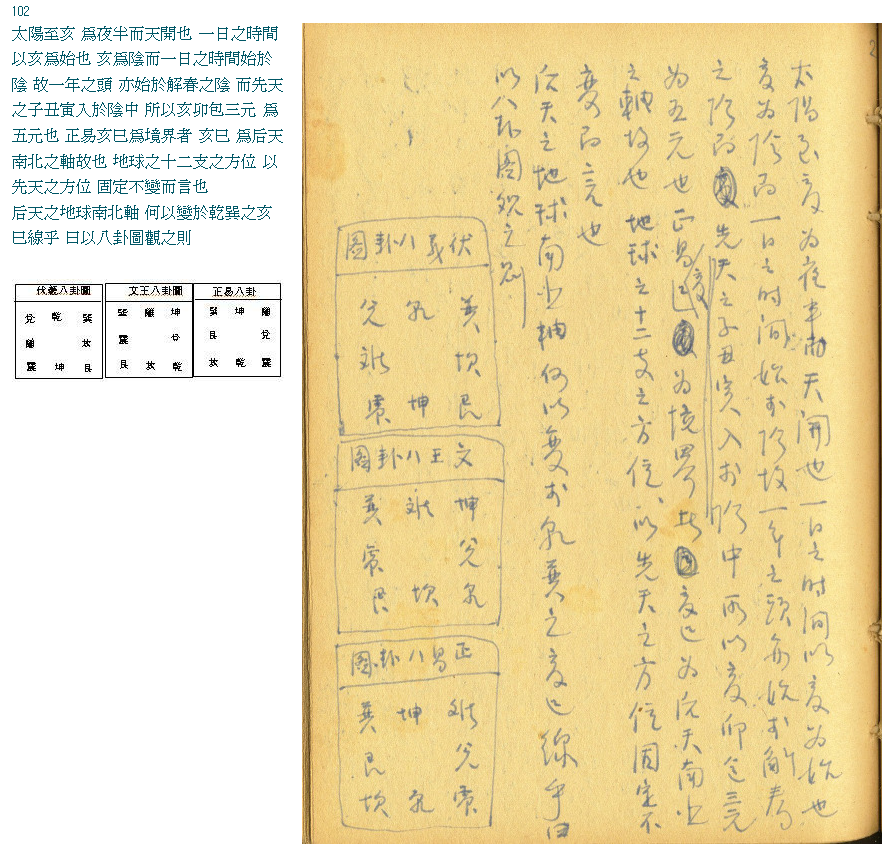 102
太陽至亥 爲夜半而天開也 一日之時間
以亥爲始也 亥爲陰而一日之時間始於
陰 故一年之頭 亦始於解春之陰 而先天
之子丑寅入於陰中 所以亥卯包三元 爲
五元也 正易亥巳爲境界者 亥巳 爲后天
南北之軸故也 地球之十二支之方位 以
先天之方位 固定不變而言也
后天之地球南北軸 何以變於乾巽之亥
巳線乎 曰以八卦圖觀之則
伏羲八卦圖
兌 乾 巽
離 坎
震 坤 艮
文王八卦圖
巽 離 坤
震 兌
艮 坎 乾
正易八卦
巽 坤 離
艮 兌
坎 乾 震
2
太陽至亥为夜半而天開也一日之时间以亥为始也
亥为陰而一日之时间始於陰故一年之頭亦始於解春
之陰而先天之子丑寅入於陰中所以亥卯包三元
为五元也正易亥巳为境界者亥巳为后天南北
之軸故也地球之十二支之方位以先天之方位固定不
變而言也
后天之地球南北軸何以變於乾巽之亥巳線乎曰
以八卦圖観之則
伏羲八卦圖
兌 乾 巽
離 坎
震 坤 艮
文王八卦圖
巽 離 坤
震 兌
艮 坎 乾
正易八卦圖
巽 坤 離
艮 兌
坎 乾 震